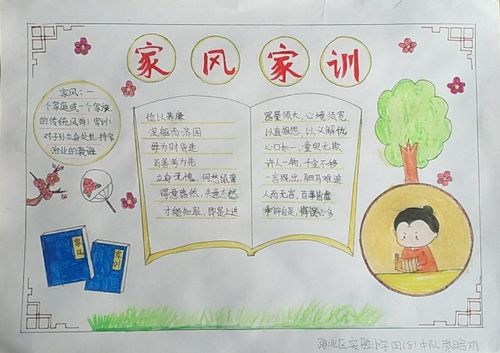 家风家训
家风：一
个家庭或一个家族
的传统风尚；家训：
对子孙立身处世、持家
治业的教诲
俭以养廉
泯躯而济国
毋为财货迷
百善孝为先
立身无愧，何愁鼠辈
得意淡然，失意态然
才能知耻，即是上进
器量须大，心境须宽
以直报怨，以义解仇
心口如一，童叟无欺
许人一物，千金不移
一言既出，驷马难追
人而无信，百事皆虚
家风
家风
路北区实验小学四(8)中队